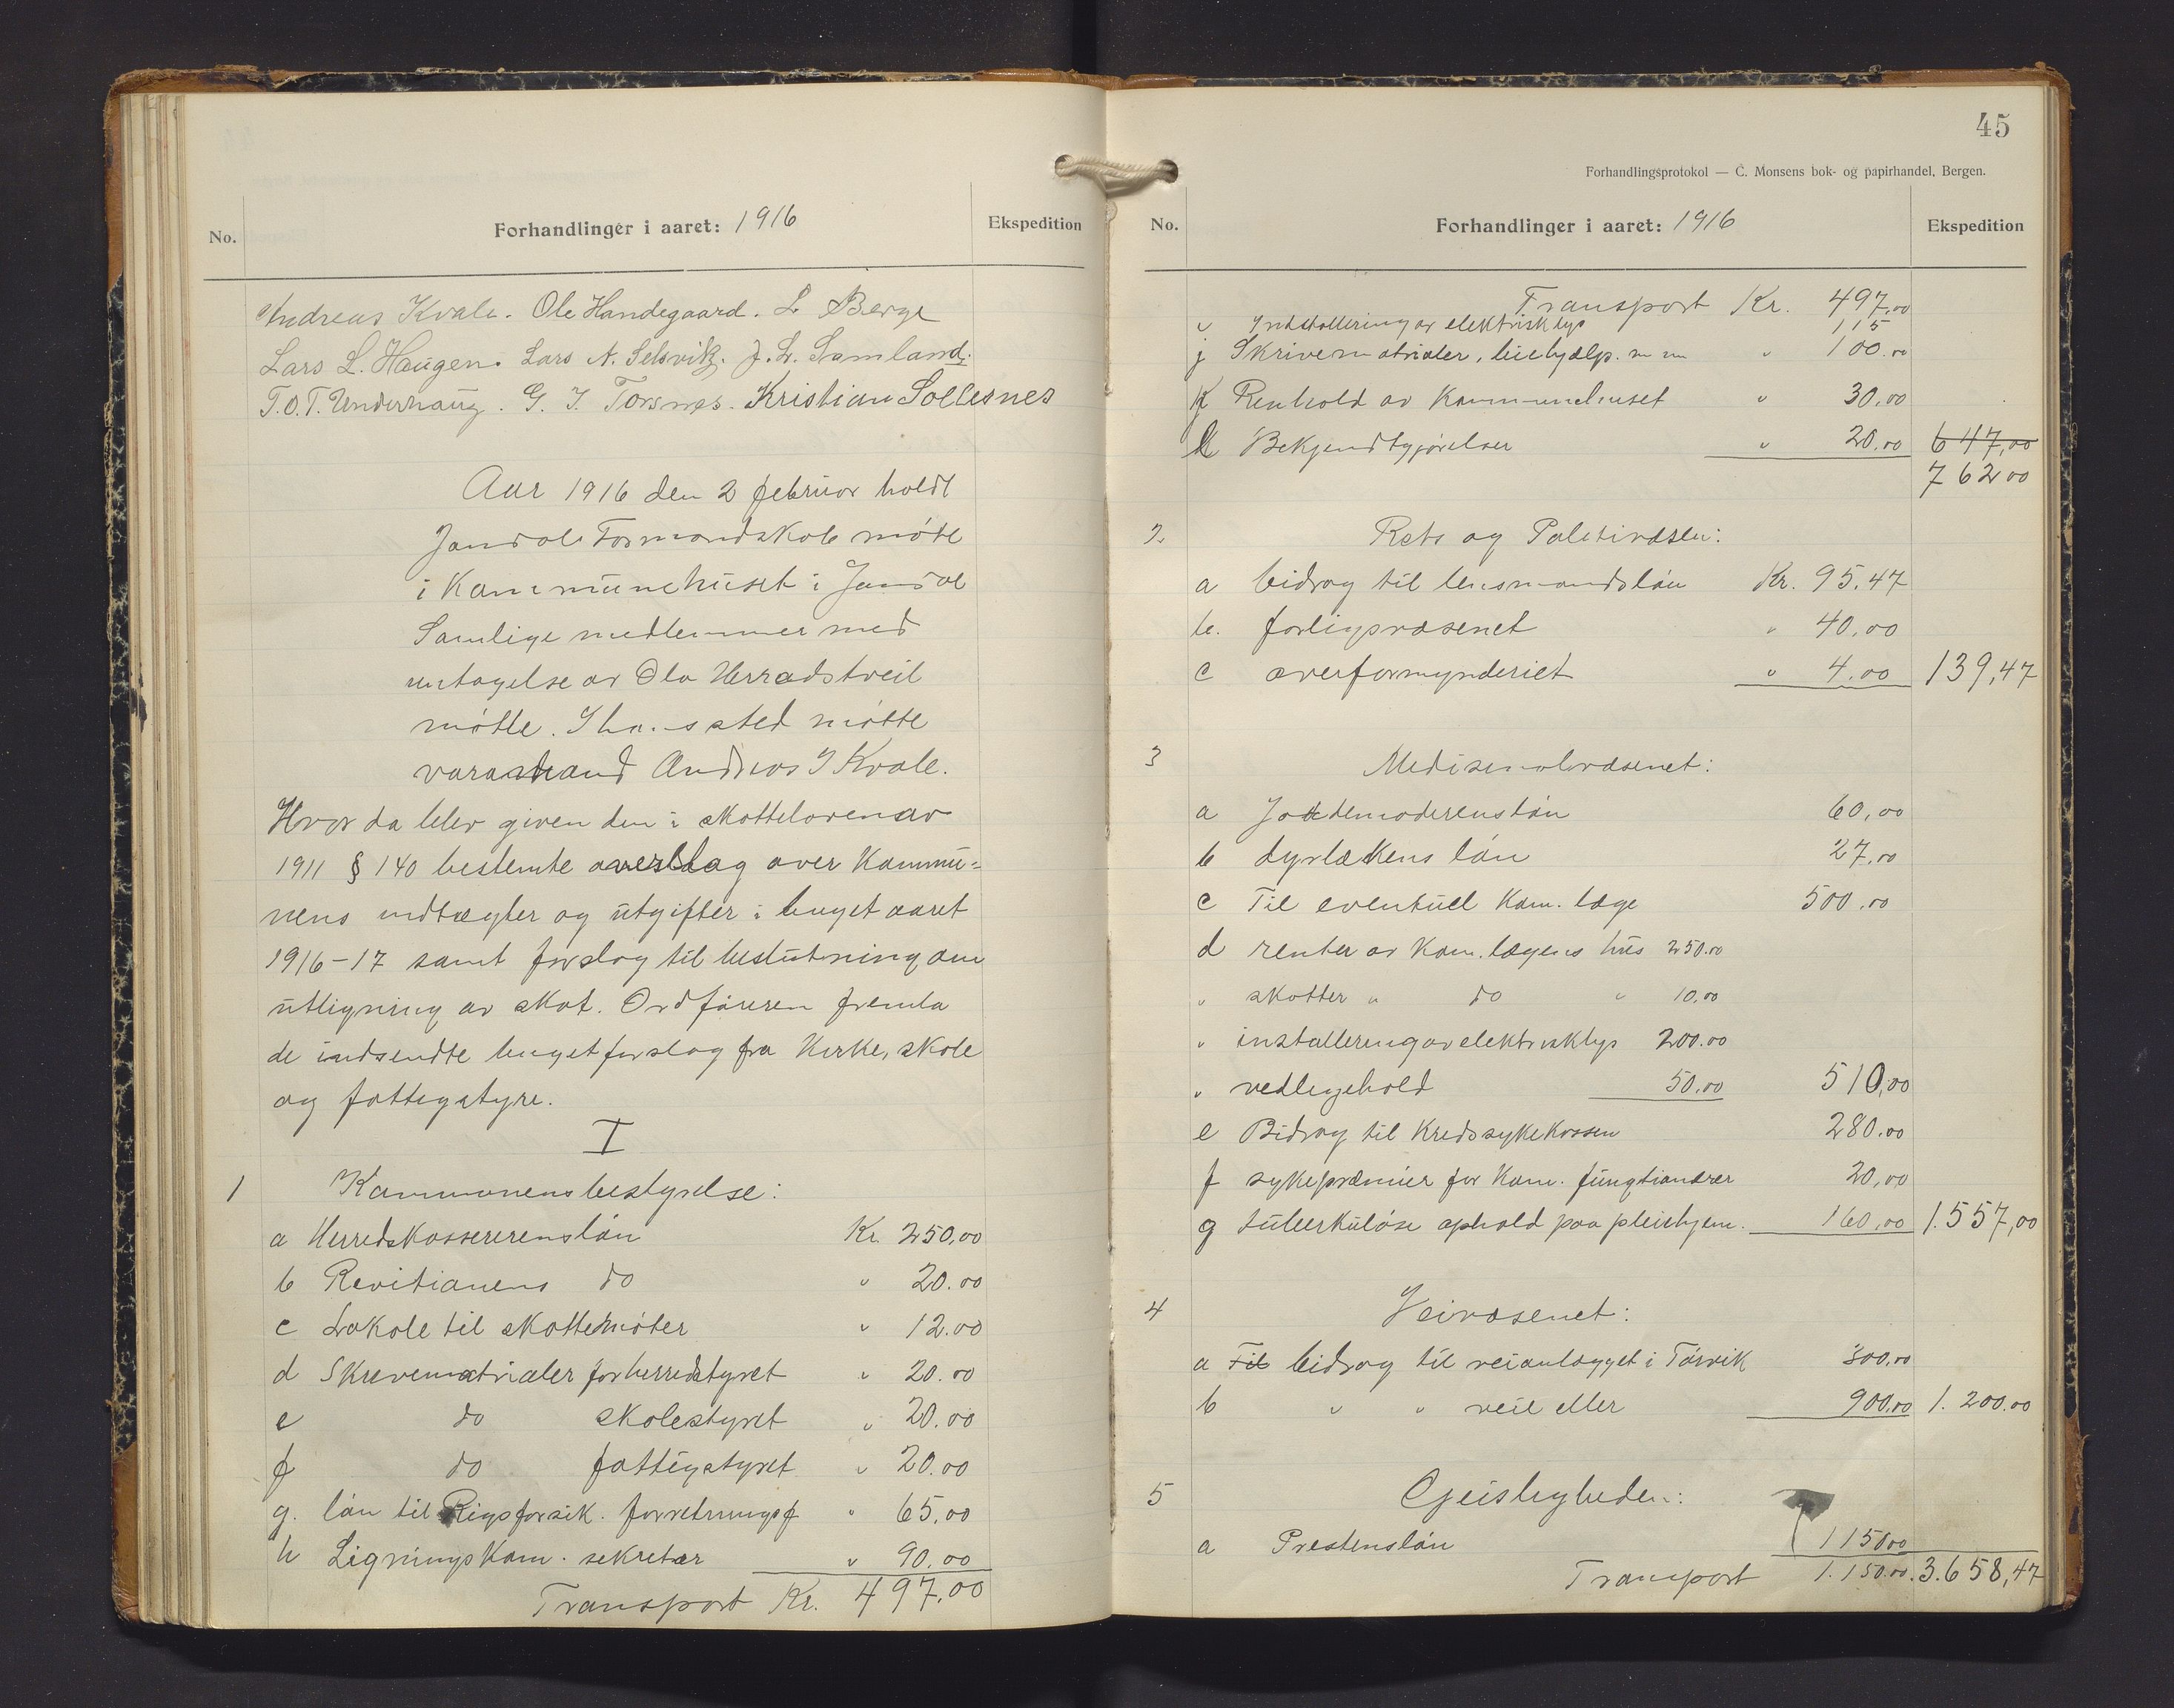 No.
Forhandlinger i aaret: 1916
Ekspedition
Andreas Kvale. Ole Handegaard. L Berge
Lars L. Haugen. Lars N. Selsvik. J. L. Samland.
T.O.T. Underhaug. G. J. Torsnes. Kristian Sollesnes
Aar 1916 den 2 februar holdt
Jondal Formandskab møte
i Kommunehuset i Jondal
Samlige medlemmer med
untagelse av Ola Herradstveit
møtte. I hans sted møtte
varamand Andreas J Kvale.
Hvor da blev given den i skatteloven av
1911 § 140 bestemte overslag over Kommu-
nens indtægter og utgifter i buget aaret
1916-17 samt forslag til beslutning om
utligning av skat. Ordføreren fremla
de indsendte bugetforslag fra Kirke, skole
og fattigstyre.
I
1 Kommunens bestyrelse:
a Herredskassererens løn Kr 250,00
b Revitionens do " 20.00
c Lokale til skattemøter " 12.00
d Skrivematrialer for herredstyret " 20.00
e do skolestyret " 20.00
f do fattigstyret " 20.00
g. løn til Rigsforsik. forretningsf " 65,00
h Ligningskom. sekretær " 90.00
Transport Kr. 497.00
45
Forhandlingsprotokol — C. Monsens bok- og papirhandel, Bergen.
No.
Forhandlinger i aaret: 1916
Ekspedition
Transport Kr. 497,00
i Indstallering av elektrisk lys 115
j Skrivematrialer, leiehjælp. m m " 100.00
k Renhold av Kommunehuset " 30,00
l Bekjendtgjørelser " 20.00 647,00
762 00
2. Rets og Politivæsen:
a bidrag til lensmandsløn Kr. 95.47
b. forligsvæsenet " 40,00
c overformynderiet " 4.00 139,47
3 Medisinalvæsenet:
a Jordemoderens løn 60,00
b dyrlækens løn 27.00
c Til eventuel Kom. læge 500.00
d renter av Kom. lægens hus 250.00
" skatter " do " 10.00
" installering av elektrisk lys 200.00
" vedligehold 50.00 510,00
e Bidrag til Kredssykekassen 280.00
f sykepræmier for Kom. fungtionærer 20,00
g tuberkuløse ophold paa pleiehjem. 160,00 1.557,00
4 Veivæsenet:
a Til bidrag til veianlægget i Tørvik 300,00
b " " veie eller 900,00 1.200.00
5 Geistligheden:
a Prestens løn 1150 00
Transport 1.150.00. 3.658,47